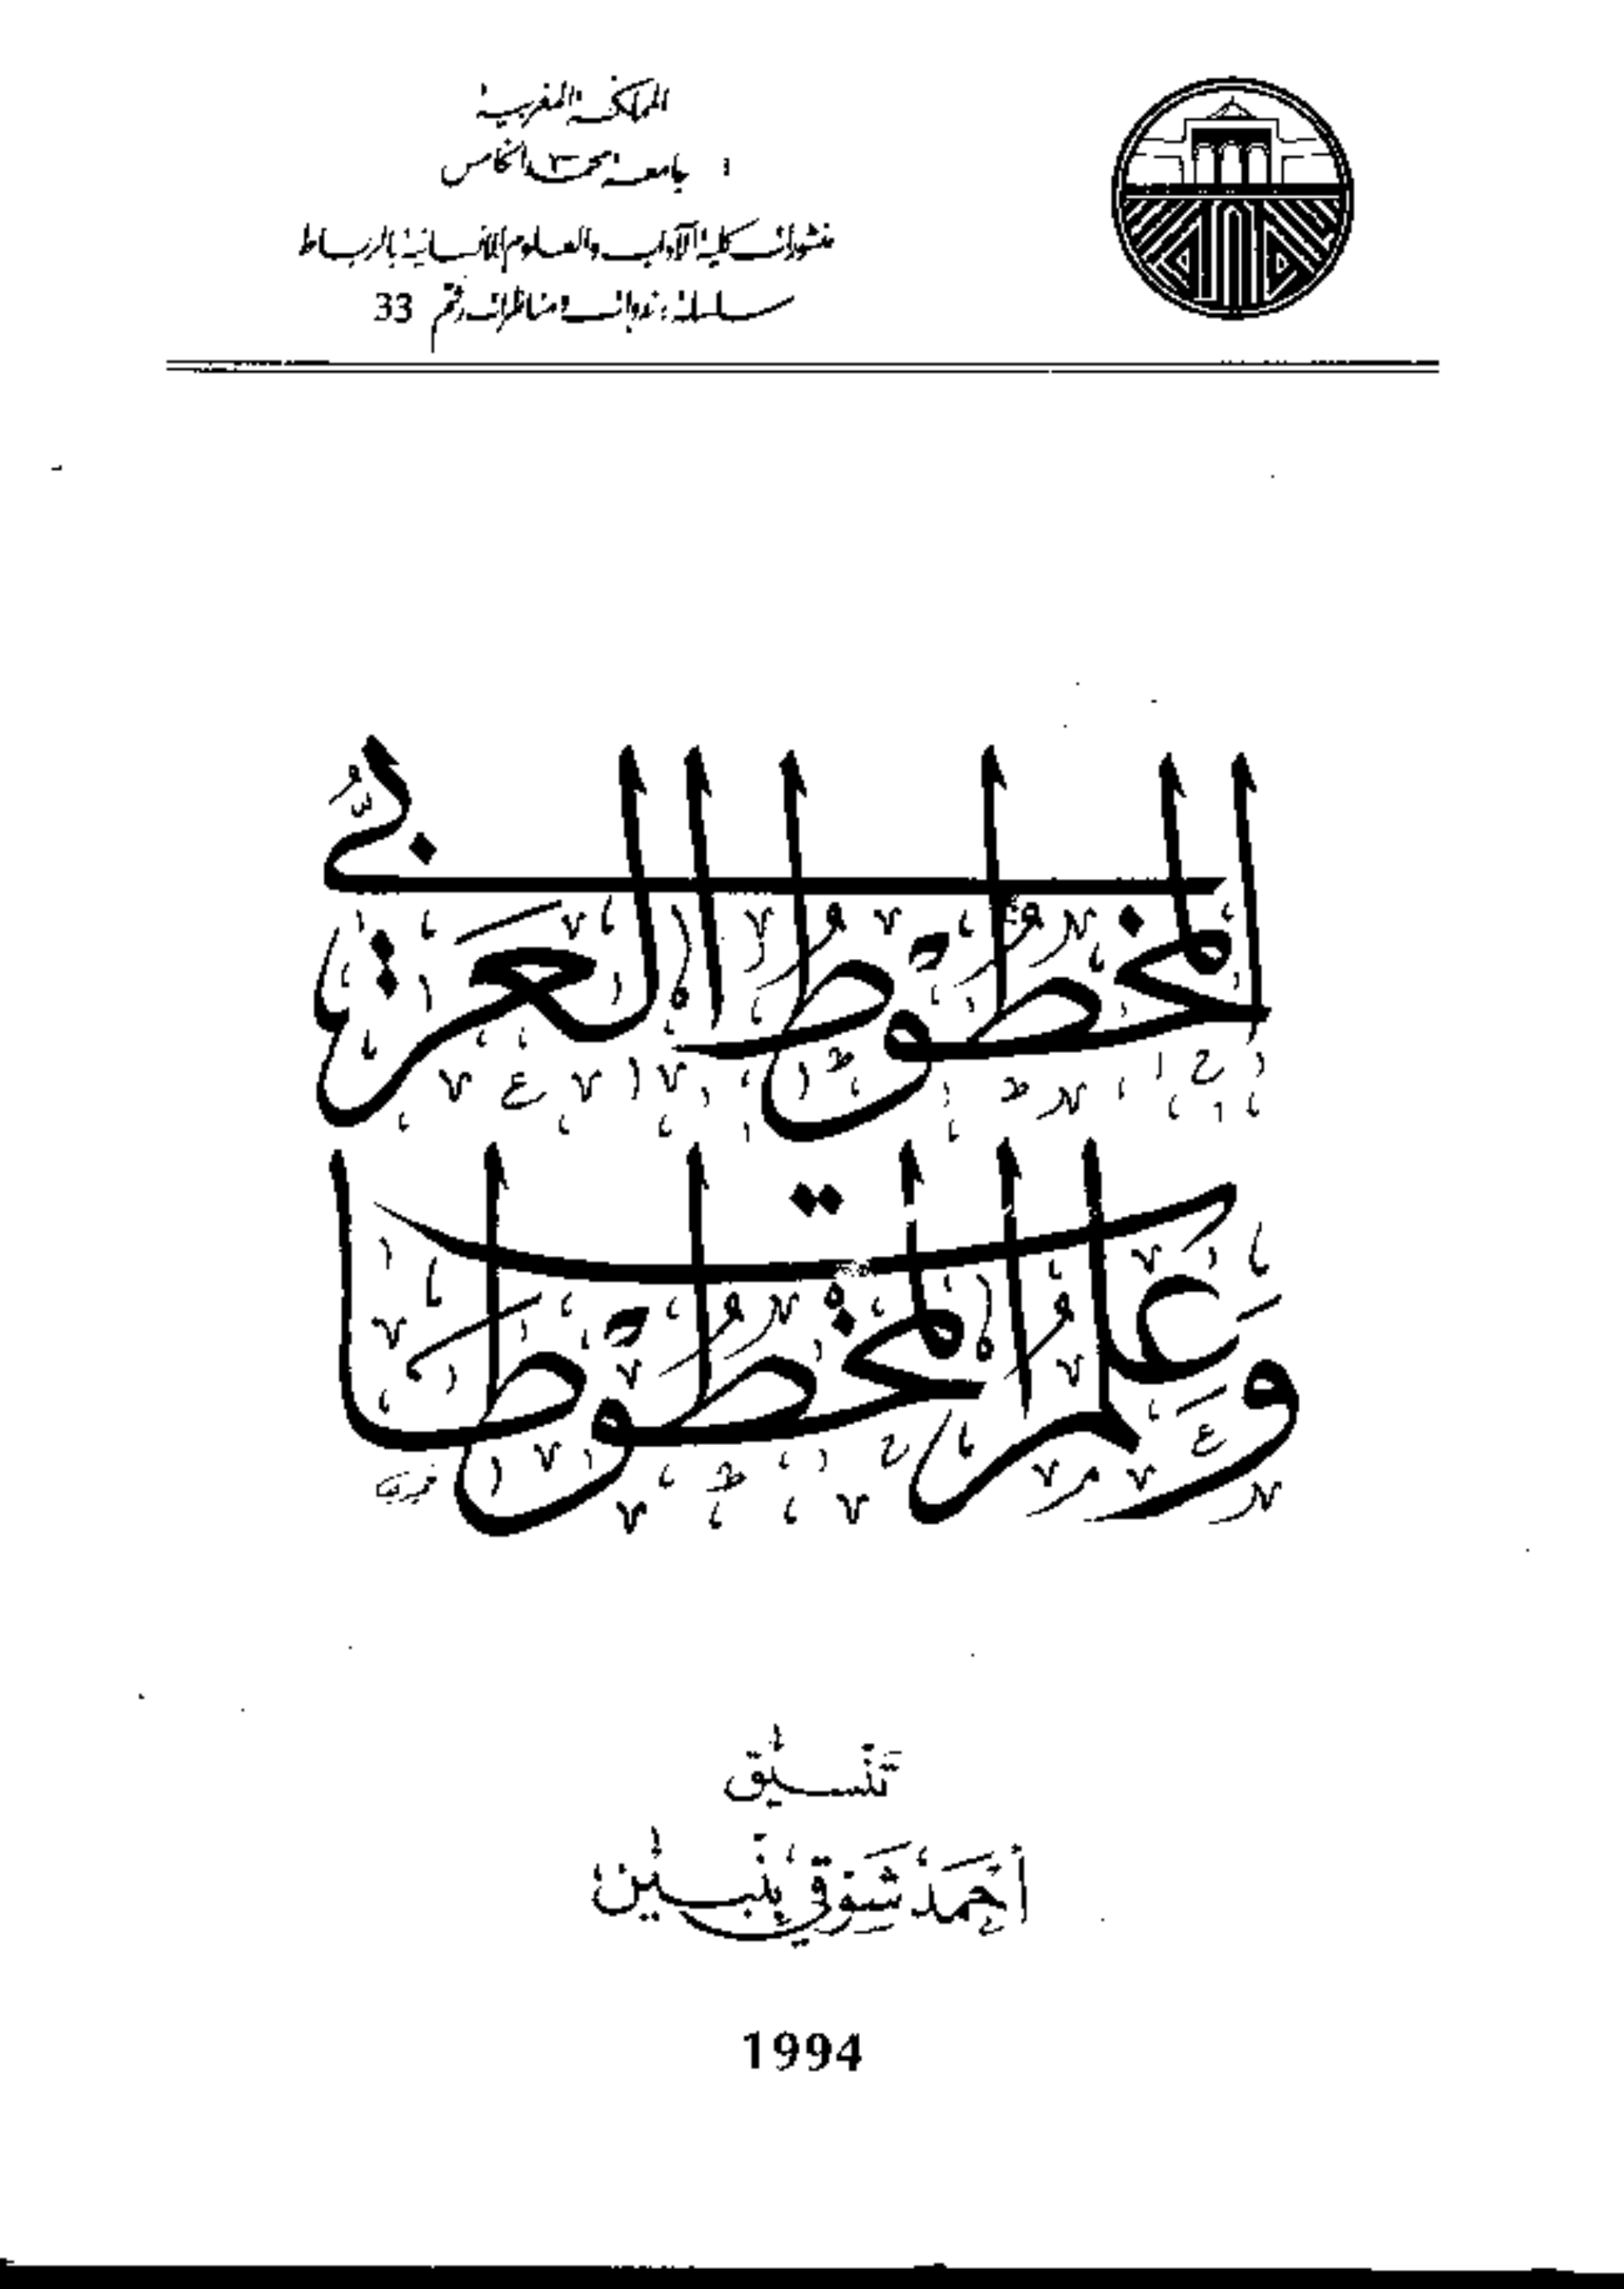 المملكة المغربية
جامعة محمد الخامس
منشورات كلية الآداب والعلوم الإنسانية بالرباط
سلسلة : ندوات ومناظرات رقم 33
المخطوط العربي
وعلم المخطوطات
تنسيق
أحمد شوقي بنبين
1994